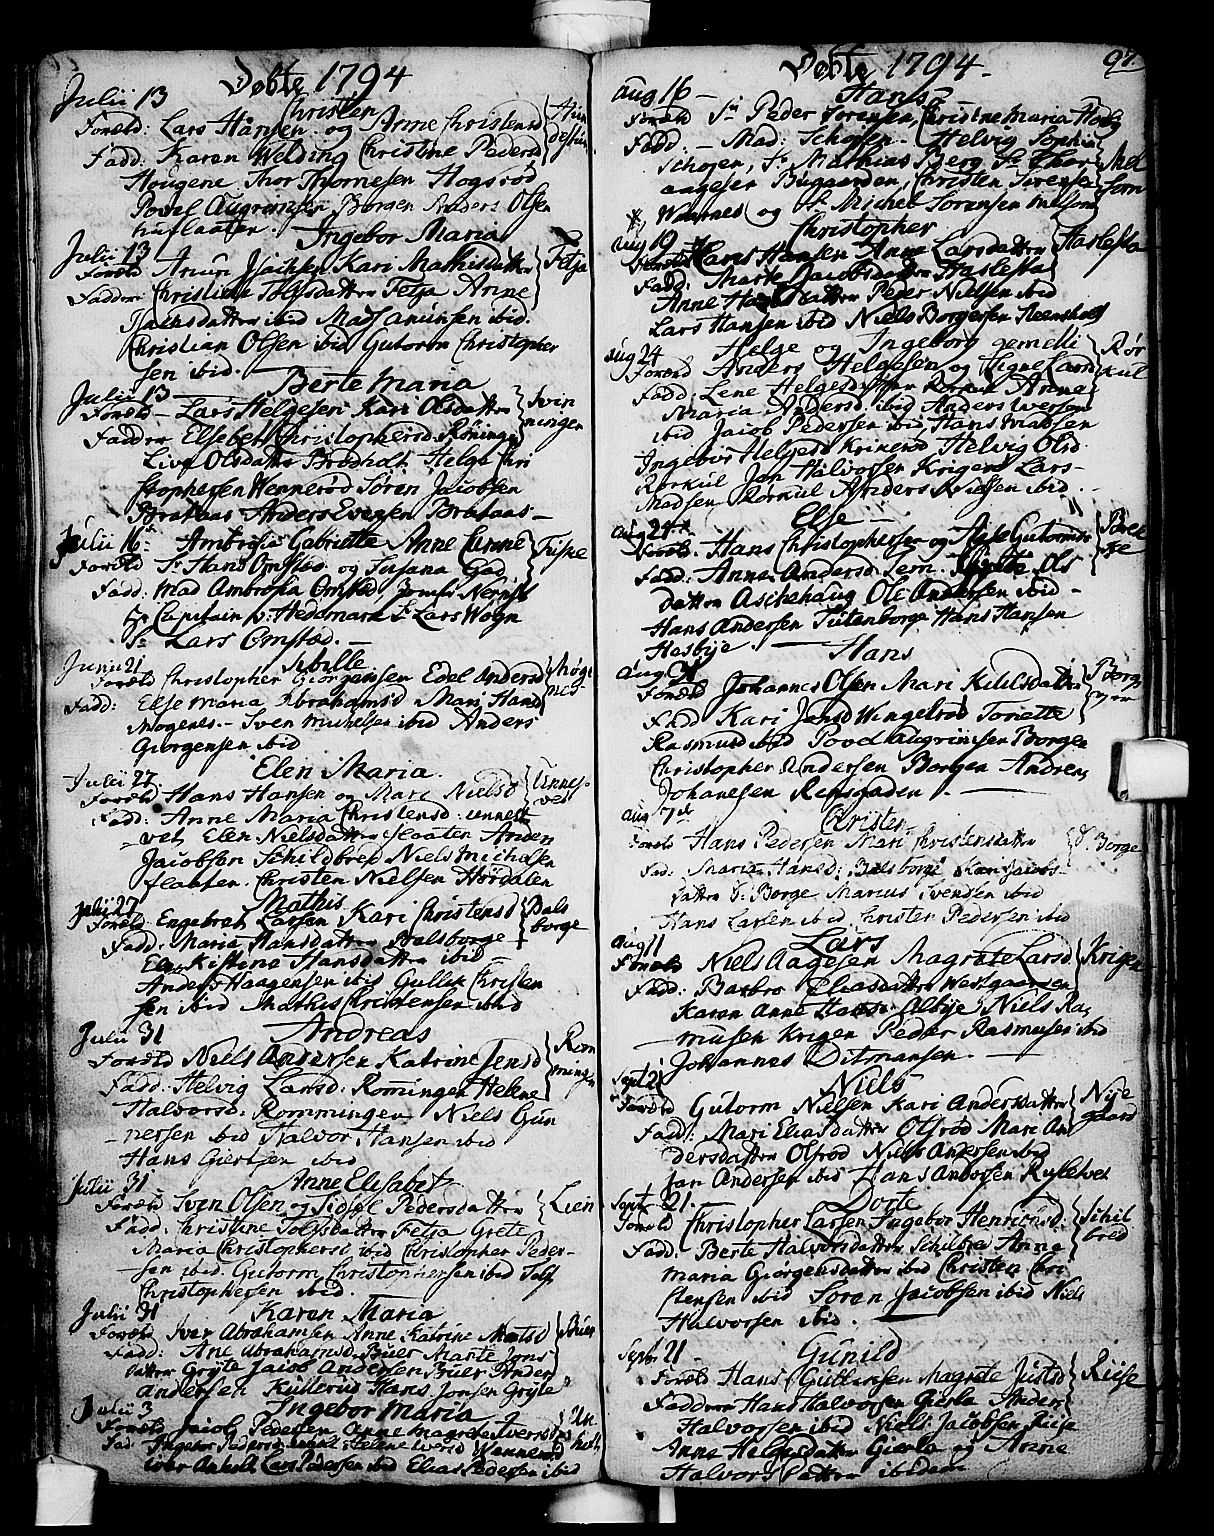 Døbte 1794
Julii 13
Christen
Foræld: Lars Hansen og Anne Christensd
Fadd: Karen Welding Christine Pedersd
Hougene Thor Thornesen Hogsrød
Povel Augrimsen Borgen Anders Olsen
Julii 13 Ingebor Maria
Foræld Amun Kari Mathisdatter Fetja
Faddere Christine Tolfsdatter Fetja Anne
ibid Mads Amunsen ibid.
Christian Olsen ibid Gutorm Christopher
sen ibid.
Julii 13 Berte Maria
Foræld Lars Helgesen Kari Olsdatter Svin
Faddere Elsebet Christophersd Røninge ningen
Live Olsdatter Brødholt Helge Chri
stophersen Wennerød Søren Jacobsen
Brataas Anders Evensen Brataas
Julii 16 Ambrosia Gabriette Anne
Foræld Sr Hans Omsted og Susana Gad
Fadd: Mad Ambrosia Omsted Jomfr
Hr Capitain v: Hedemark Sr Lars Wogn
Sr Lars Omsted.
Junii 21 Sibille
Foræld Christopher Giørgensen Edel Andersd Møge
Fadd: Else Maria Abrahamsd Mari Hansd nes
Mogenes Sven Michelsen ibid Anders
Giørgensen ibid
Julii 27 Elen Maria
Foræld Hans Hansen og Mari Nielsd Unnes
Fadd: Anne Maria Christensd unnest vet
vet, Elen Nielsdatter Flaaten Anders
Jacobsen Schilbred Niels Michelsen
flaaten. Christen Nielsen Hørdalen
Julii 27 Mathis
Foræld Engebret Larsen Kari Christensd Bals
Fadd: Maria Hansdatter Balsborge borge
Elen Kistine Hansdatter ibid
Anders Haagensen ibid Gullik Christen
sen ibid Mathis Christensen ibid
Julii 31 Andreas
Foræld Niels Andersen Katrine Jensd Rom
Fadd: Helvig Larsd: Romingen Helene mingen
Halvorsd: Rommingen Niels Gun
nersen ibid Halvor Hansen ibid
Hans Giertsen ibid
Julii 31 Anne Elisabet
Foræld Sven Olsen og Sidsel Pedersdatter Lien
Fadd: Christine Tolfsdatter Fetja Grete
Maria Christophersd ibid Christopher Peder
sen ibid. Gutorm Christophersen ibid Tolf
Christophersen ibid.
Julii 31 Karen Maria
Foræld Iver Abrahamsen Anne Katrine Matsd Buer
Fadd: Ane Abrahamsd Buer Marte Jons
datter Grÿte Jacob Andersen Buer Anders
andersen Kullerud Hans Jonsen Grÿte
Julii 3 Ingebor Maria
Foræld Jacob Pedersen Anne Magrete Iversd
Fad: Ingebor Pedersd Helene Iversd Wennerød
Iver Anholt Lars Pedersen ibid Elias Pedersen ibid
Døbte 1794
97.
Aug 16 Hans
Foræld Sr Peder Sørensen, Christine Maria
Fadd. Mad: Schoten. Helvig Sophia
Schogen, Sr Mathias Berg Sr Thor
aagesen Bugaarden, Christen Sørensen
Waarnes og Sr Michel Sørensen
Aug 19 Christopher
Foræld Hans Hansen Anne Larsdatter Haslesta
Fadd: Marte Jacobsdatter Haslesta
Anne datter Peder Nielsen ibid
Lars Hansen ibid Niels Borgersen Reensholt
Aug 24 Helge og Ingeborg gemelli
Foræld Anders Helgesen og Signe Larsd Rør
Fadd: Lene Helgesdatter Rørkul Anne kul
Maria Andersd ibid Anders Iversen
ibid Jacob Pedersen ibid Hans Madsen
Ingebor Helgesd Krigene Helvig Olsd
Rørkul Jon Halvorsen Krigene Lars
Madsen Rørkul Anders Nielsen ibid.
Aug 24 Else
Foræld: Hans Christophersen og Aase Gutorms
Fadd: Anne Andersd Lem. Grete Ols
datter Aschehaug Ole Andersen ibid
Hans Andersen Tutenborge Hans Hansen
Hasbije.
Aug Hans
Foræld Johannes Olsen Mari Kittilsdatter Borgen
Fadd Kari Jensd Wingelrod Toriette
Rasmusd ibid Povel Augrimsen Borgen
Christopher Andersen Borgen Andreas
Johanesen Rensgaden.
Aug 7de Christen
Foræld Hans Pedersen Mari Christensdatter S: Borge
Fad: Maria Hansd: Balsborge Kari Jacobs
datter S: Borge Marius Svendsen ibid
Hans Larsen ibid Christen Pedersen ibid
Aug 11 Lars
Foræld Niels Aagesen Magrete Larsd Krigen
Fadd: Barbro Eliasdatter Westgaarden
Karen Anne Hansd Albije Niels Ras
musen Krigen Peder Rasmusen ibid
Johannes Ditmansen.
Sept 21 Niels
Foræld Gutorm Nielsen Kari Andersdatter Nÿe
Fadd: Mari Eliasdatter Olsrød Mari An gaard
dersdatter Olsrød Niels Andersen ibid
Jan Andersen ibid Hans Andersen
Sept 21. Dorte
Foræld Christopher Larsen Ingebor Henrichsd Schil
Fadd: Berte Halvorsdatter Schilbred Anne bred
Maria Giørgensdatter ibid Christen Chri
stensen ibid Søren Jacobsen ibid Niels
Halvorsen ibid.
Septr 21 Gunild
Foræld Hans Gullixsen Magrete Justsd Riise
Faddere Hans Halvorsen Gierla Anders
Halvorsen ibid Niels Jacobsen Riise
Anne Helgesdatter Gierla og Anne
Halvorsdatter ibidem